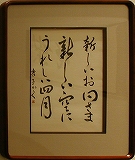 新しいお日さま
新しい空に
うれしい四月